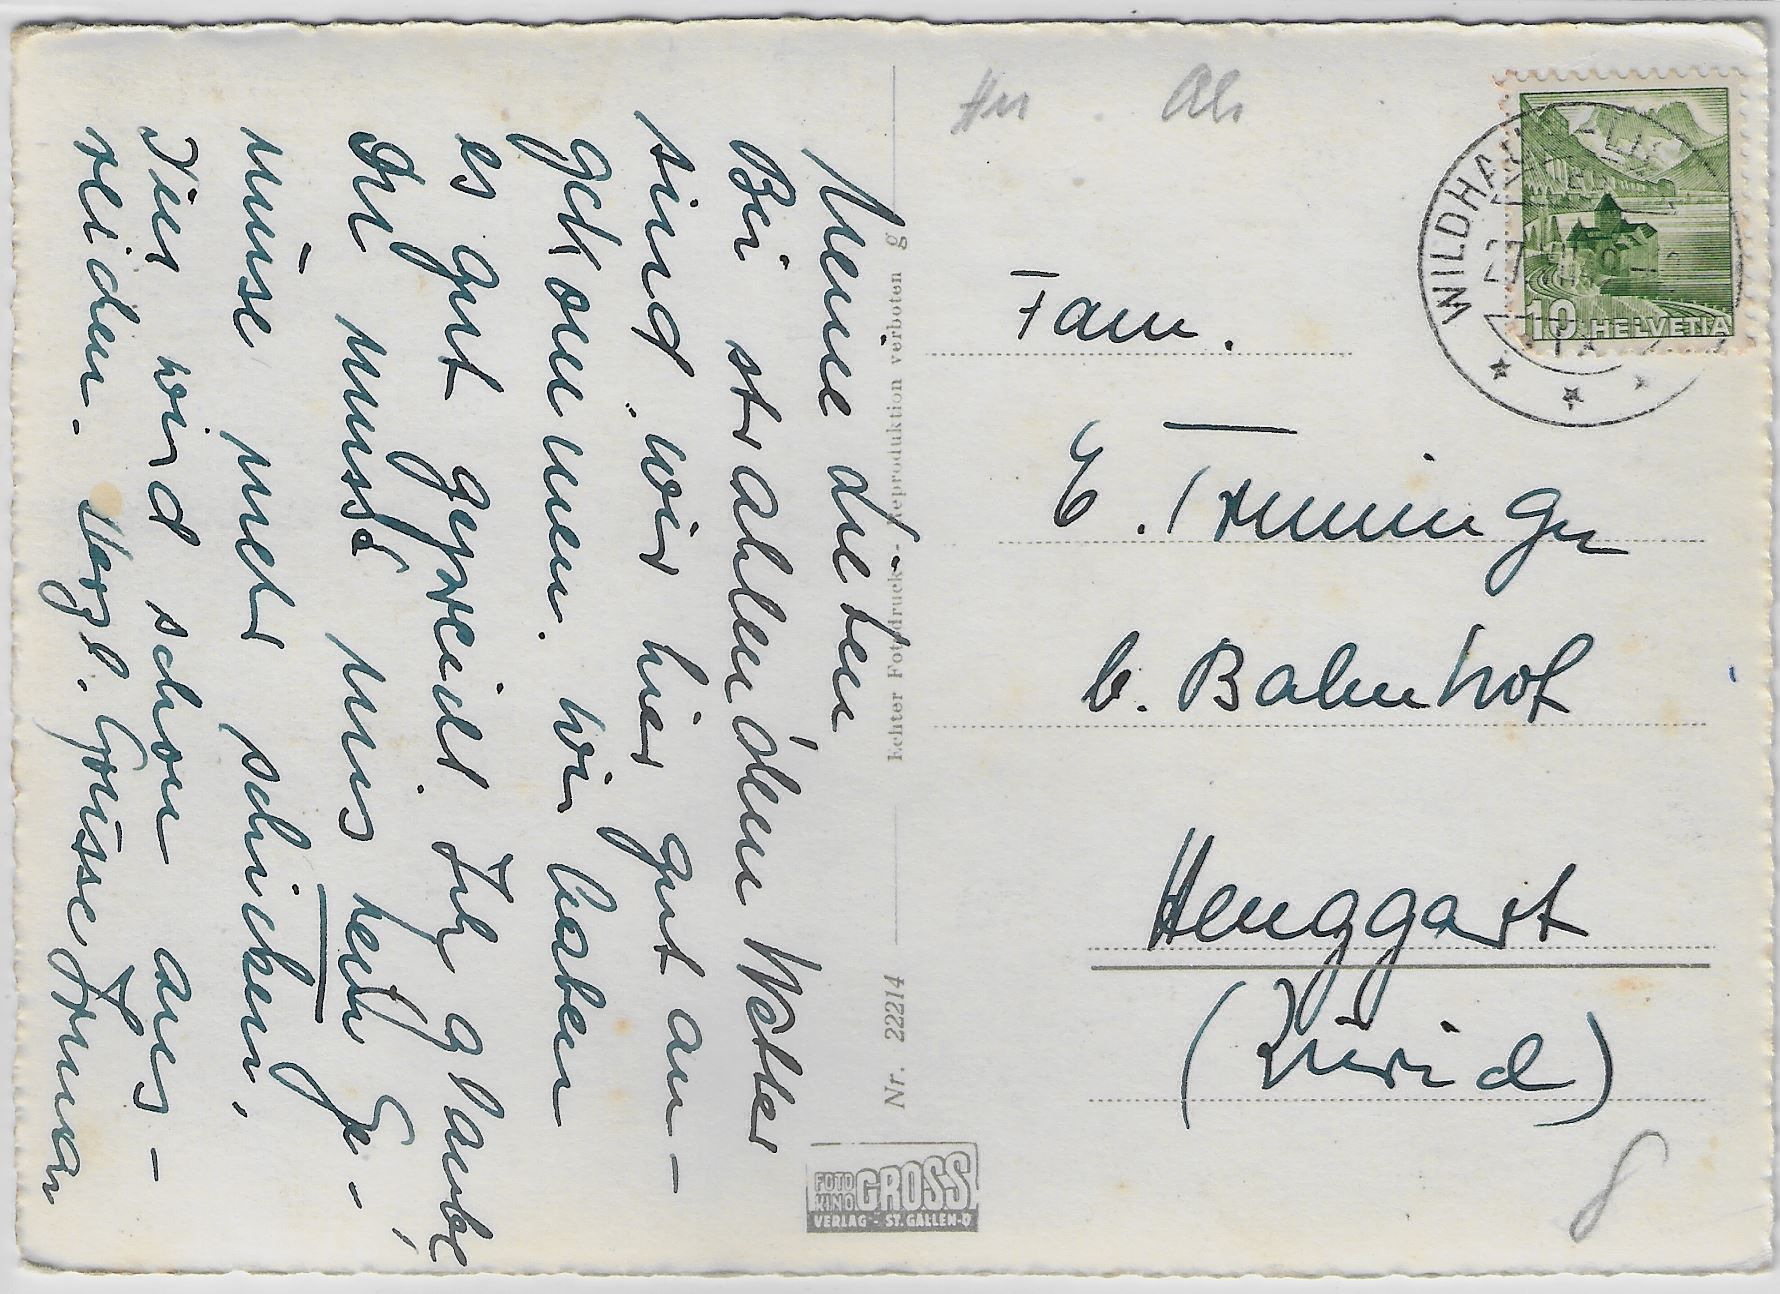 Meine Lieben
Bei strahlendem Wetter
sind wir hier gut an-
gekommen. Wir haben
es gut gepreicht. Ich glaube,
Ihr müsst mir kein Ge-
müse mehr schicken,
Hier wird schon aus-
reichen. Herzl. Grüsse Irma
Echter Fotodruck - Reproduktion verboten g
Nr. 22214
FOTO KINO GROSS
VERLAG - ST. GALLEN-O
WILDHAUS
10 HELVETIA
Fam.
E. Truninger
b. Bahnhof
Henggart
(Zürich)
8